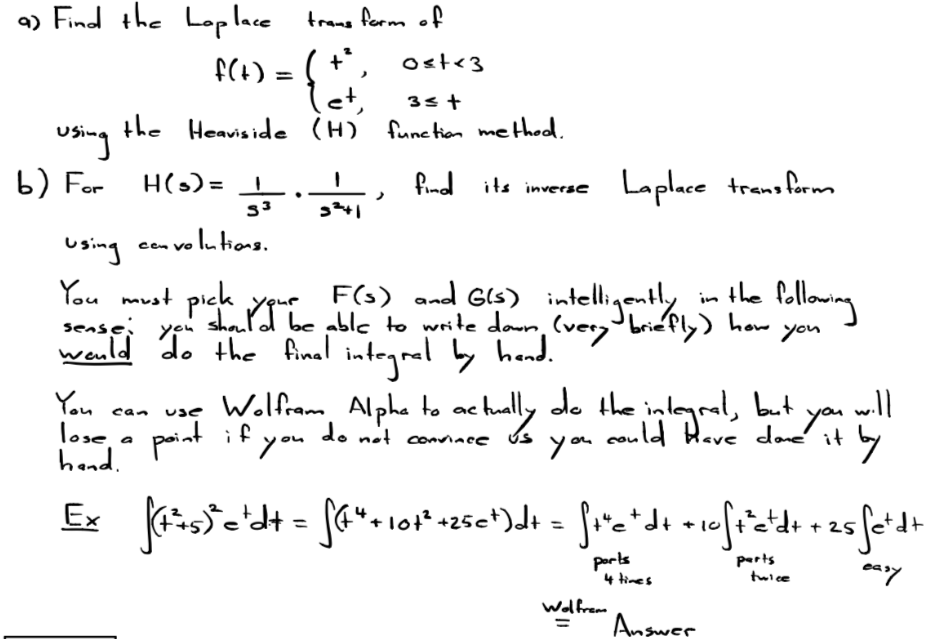 a) Find the Laplace transform of
f(t) = { t², 0≤t<3
e^t, 3≤t
using the Heaviside (H) function method.
b) For H(s) = 1/s³ · 1/(s²+1), find its inverse Laplace transform
using convolutions.
You must pick your F(s) and G(s) intelligently in the following
sense: you should be able to write down (very briefly) how you
would do the final integral by hand.
You can use Wolfram Alpha to actually do the integral, but you will
lose a point if you do not convince us you could have done it by
hand.
Ex ∫(t²+5)²e^t dt = ∫(t⁴+10t²+25e^t)dt = ∫t⁴e^t dt + 10∫t²e^t dt + 25∫e^t dt
parts parts easy
4 times twice
Wolfram
= Answer